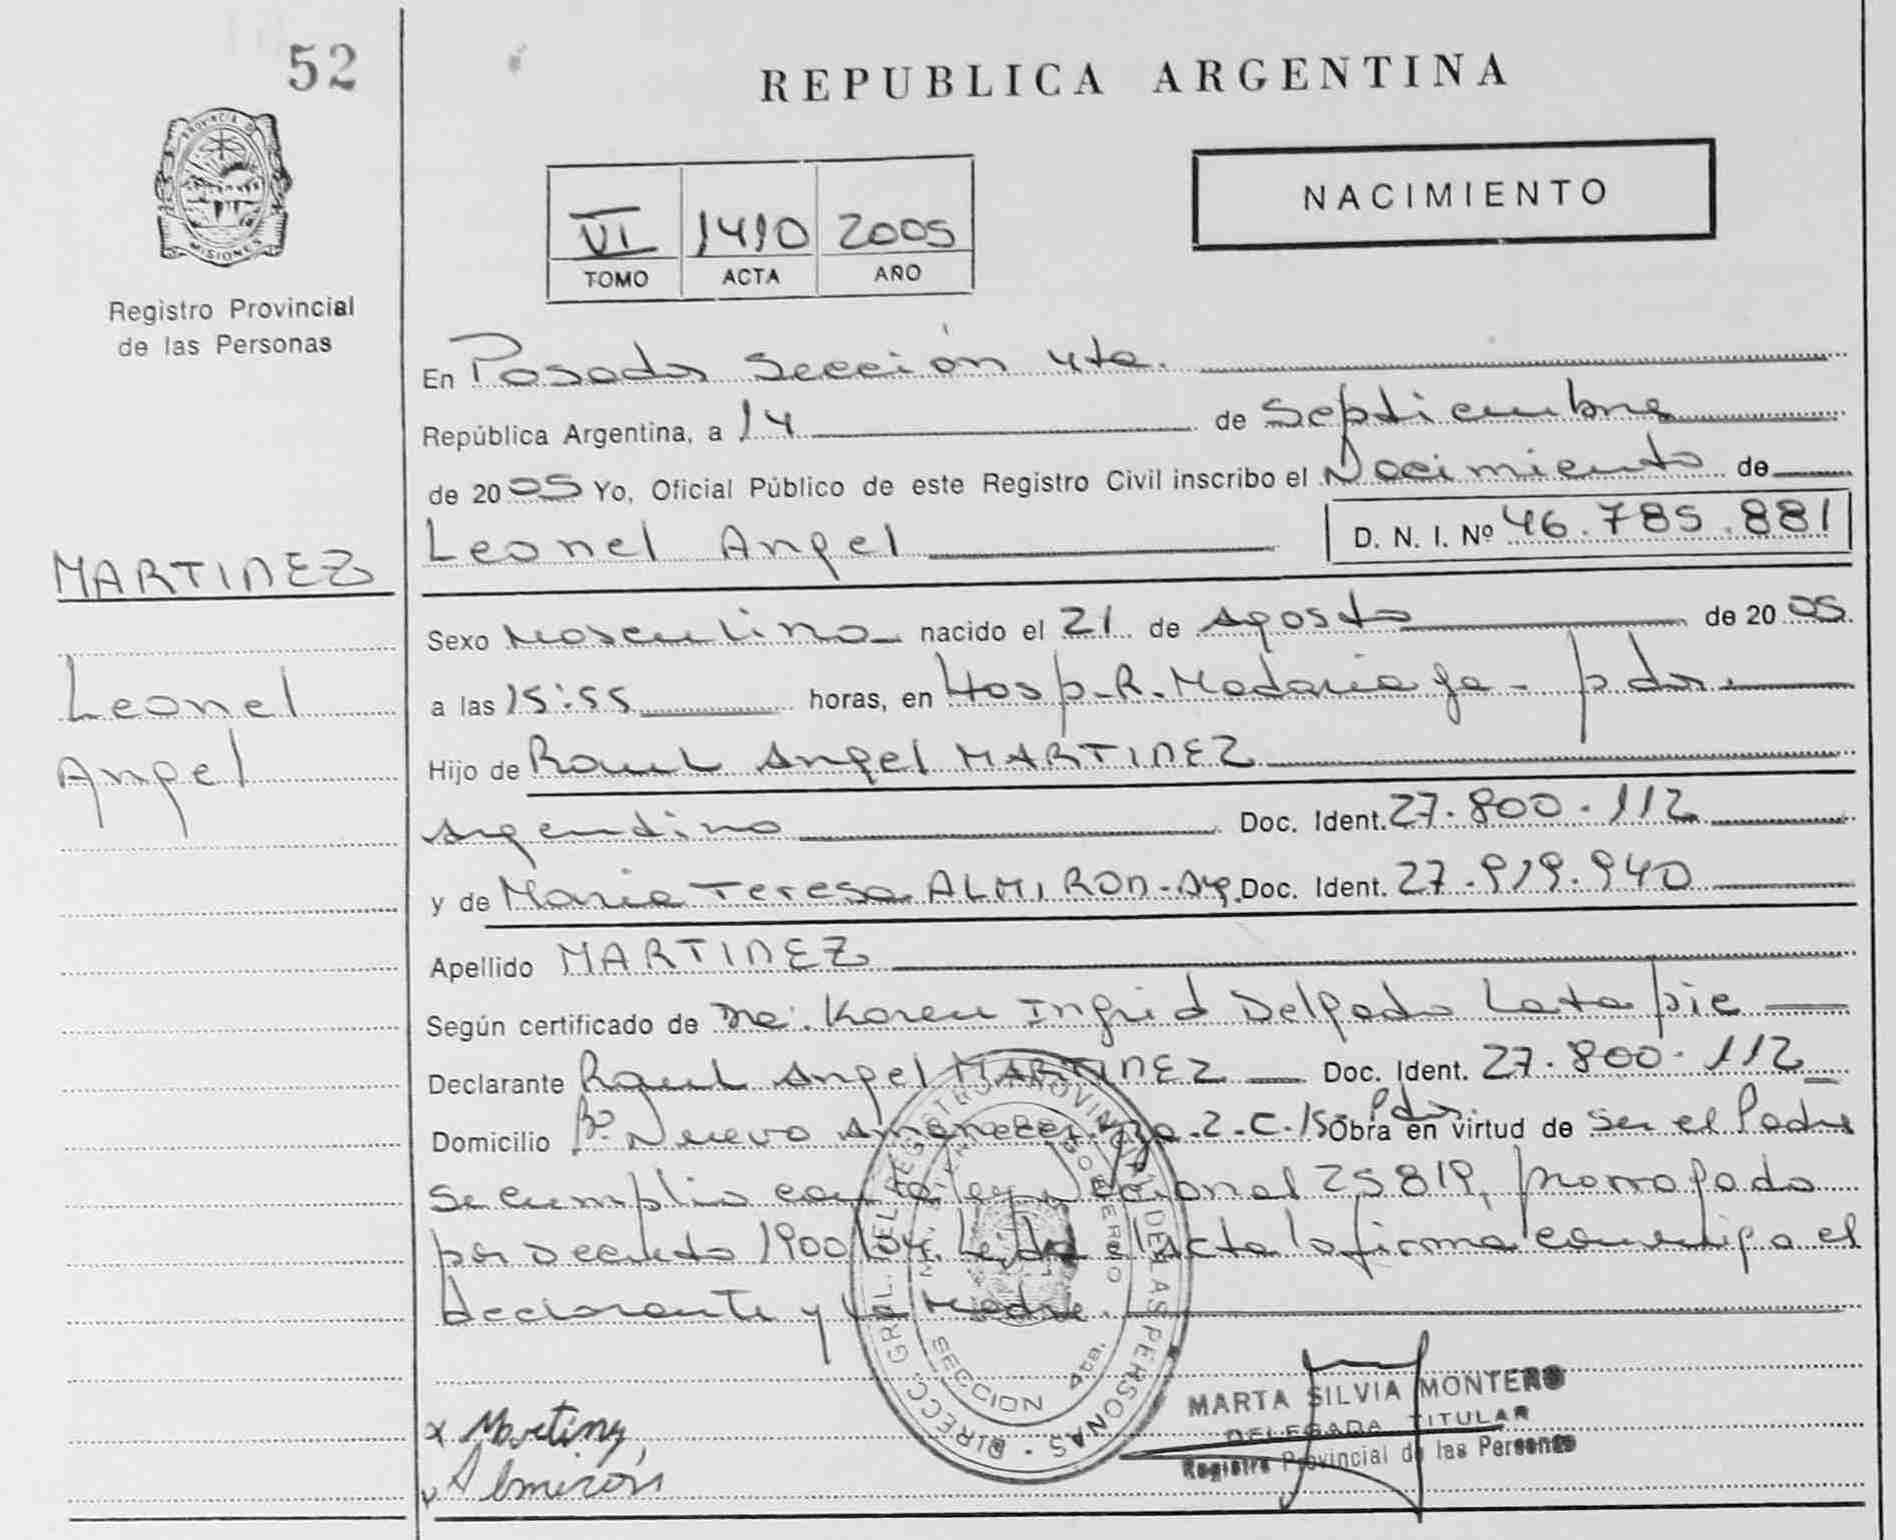 52
REPUBLICA ARGENTINA
PROVINCIA D
MISIONES
Registro Provincial
de las Personas
NACIMIENTO
VI 1410 2005
TOMO ACTA AÑO
En Posadas Sección 4ta.
República Argentina, a 14 de Septiembre
de 2005 Yo, Oficial Público de este Registro Civil inscribo el Nacimiento de
Leonel Angel D. N. I. Nº 46.785.881
MARTINEZ
Leonel
Angel
Sexo Masculino nacido el 21 de Agosto de 2005
a las 15:55 horas, en Hosp. R. Madariaga - pdas.
Hijo de Raul Angel MARTINEZ
Argentino Doc. Ident. 27.800.112
y de Maria Teresa ALMIRON - Arg. Doc. Ident. 27.919.940
Apellido MARTINEZ
Según certificado de Dra. Karen Ingrid Delgado Latapie
Declarante Raul Angel MARTINEZ Doc. Ident. 27.800.112
Domicilio Bº Nuevo Amanecer 2-C-15 Pdas Obra en virtud de ser el Padre
se cumplio con la ley Nacional 25819, prorrogada
por Decreto 1900/04. Leida el Acta la firma conmigo el
declarante y la Madre.
DIRECC. GRAL. DEL REGISTRO PROVINCIAL DE LAS PERSONAS
GOBIERNO
SECCION 4ta.
x Martinez
Almirón
MARTA SILVIA MONTERO
DELEGADA TITULAR
Registro Provincial de las Personas